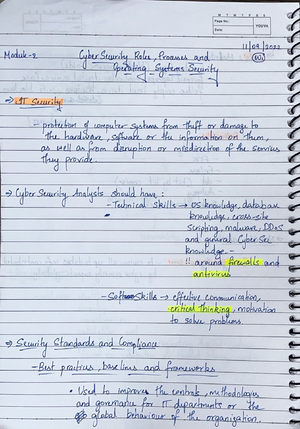 M T W T F S S
Page No.:
Date:
YOUVA
11/09/2022
Module-2
Cyber Security Roles, Processes and
Operating Systems Security
→ IT Security
- protection of computer systems from theft or damage to
the hardware, software or the information on them,
as well as from disruption or misdirection of the services
they provide.
→ Cyber Security Analysts should have:
- Technical skills → OS knowledge, database
knowledge, cross-site
scripting, malware, DDoS
and general Cyber Sec
knowledge -
!! around firewalls and
antivirus
- Soft Skills → effective communication,
critical thinking, motivation
to solve problems.
→ Security Standards and Compliance
- Best practices, baselines and frameworks
• Used to improve the controls, methodologies
and governance for IT departments or the
global behaviour of the organization.